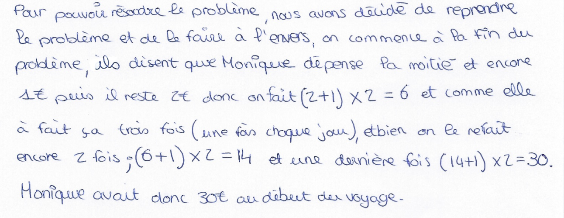 Pour pouvoir résoudre le problème, nous avons décidé de reprendre
le problème et de le faire à l'envers, on commence à la fin du
problème, ils disent que Monique dépense la moitié et encore
1€ puis il reste 2€ donc on fait (2+1) x2 = 6 et comme elle
à fait ça trois fois (une fois chaque jour), etbien on le refait
encore 2 fois ; (6+1) x2 = 14 et une dernière fois (14+1) x2 = 30.
Monique avait donc 30€ au début du voyage.